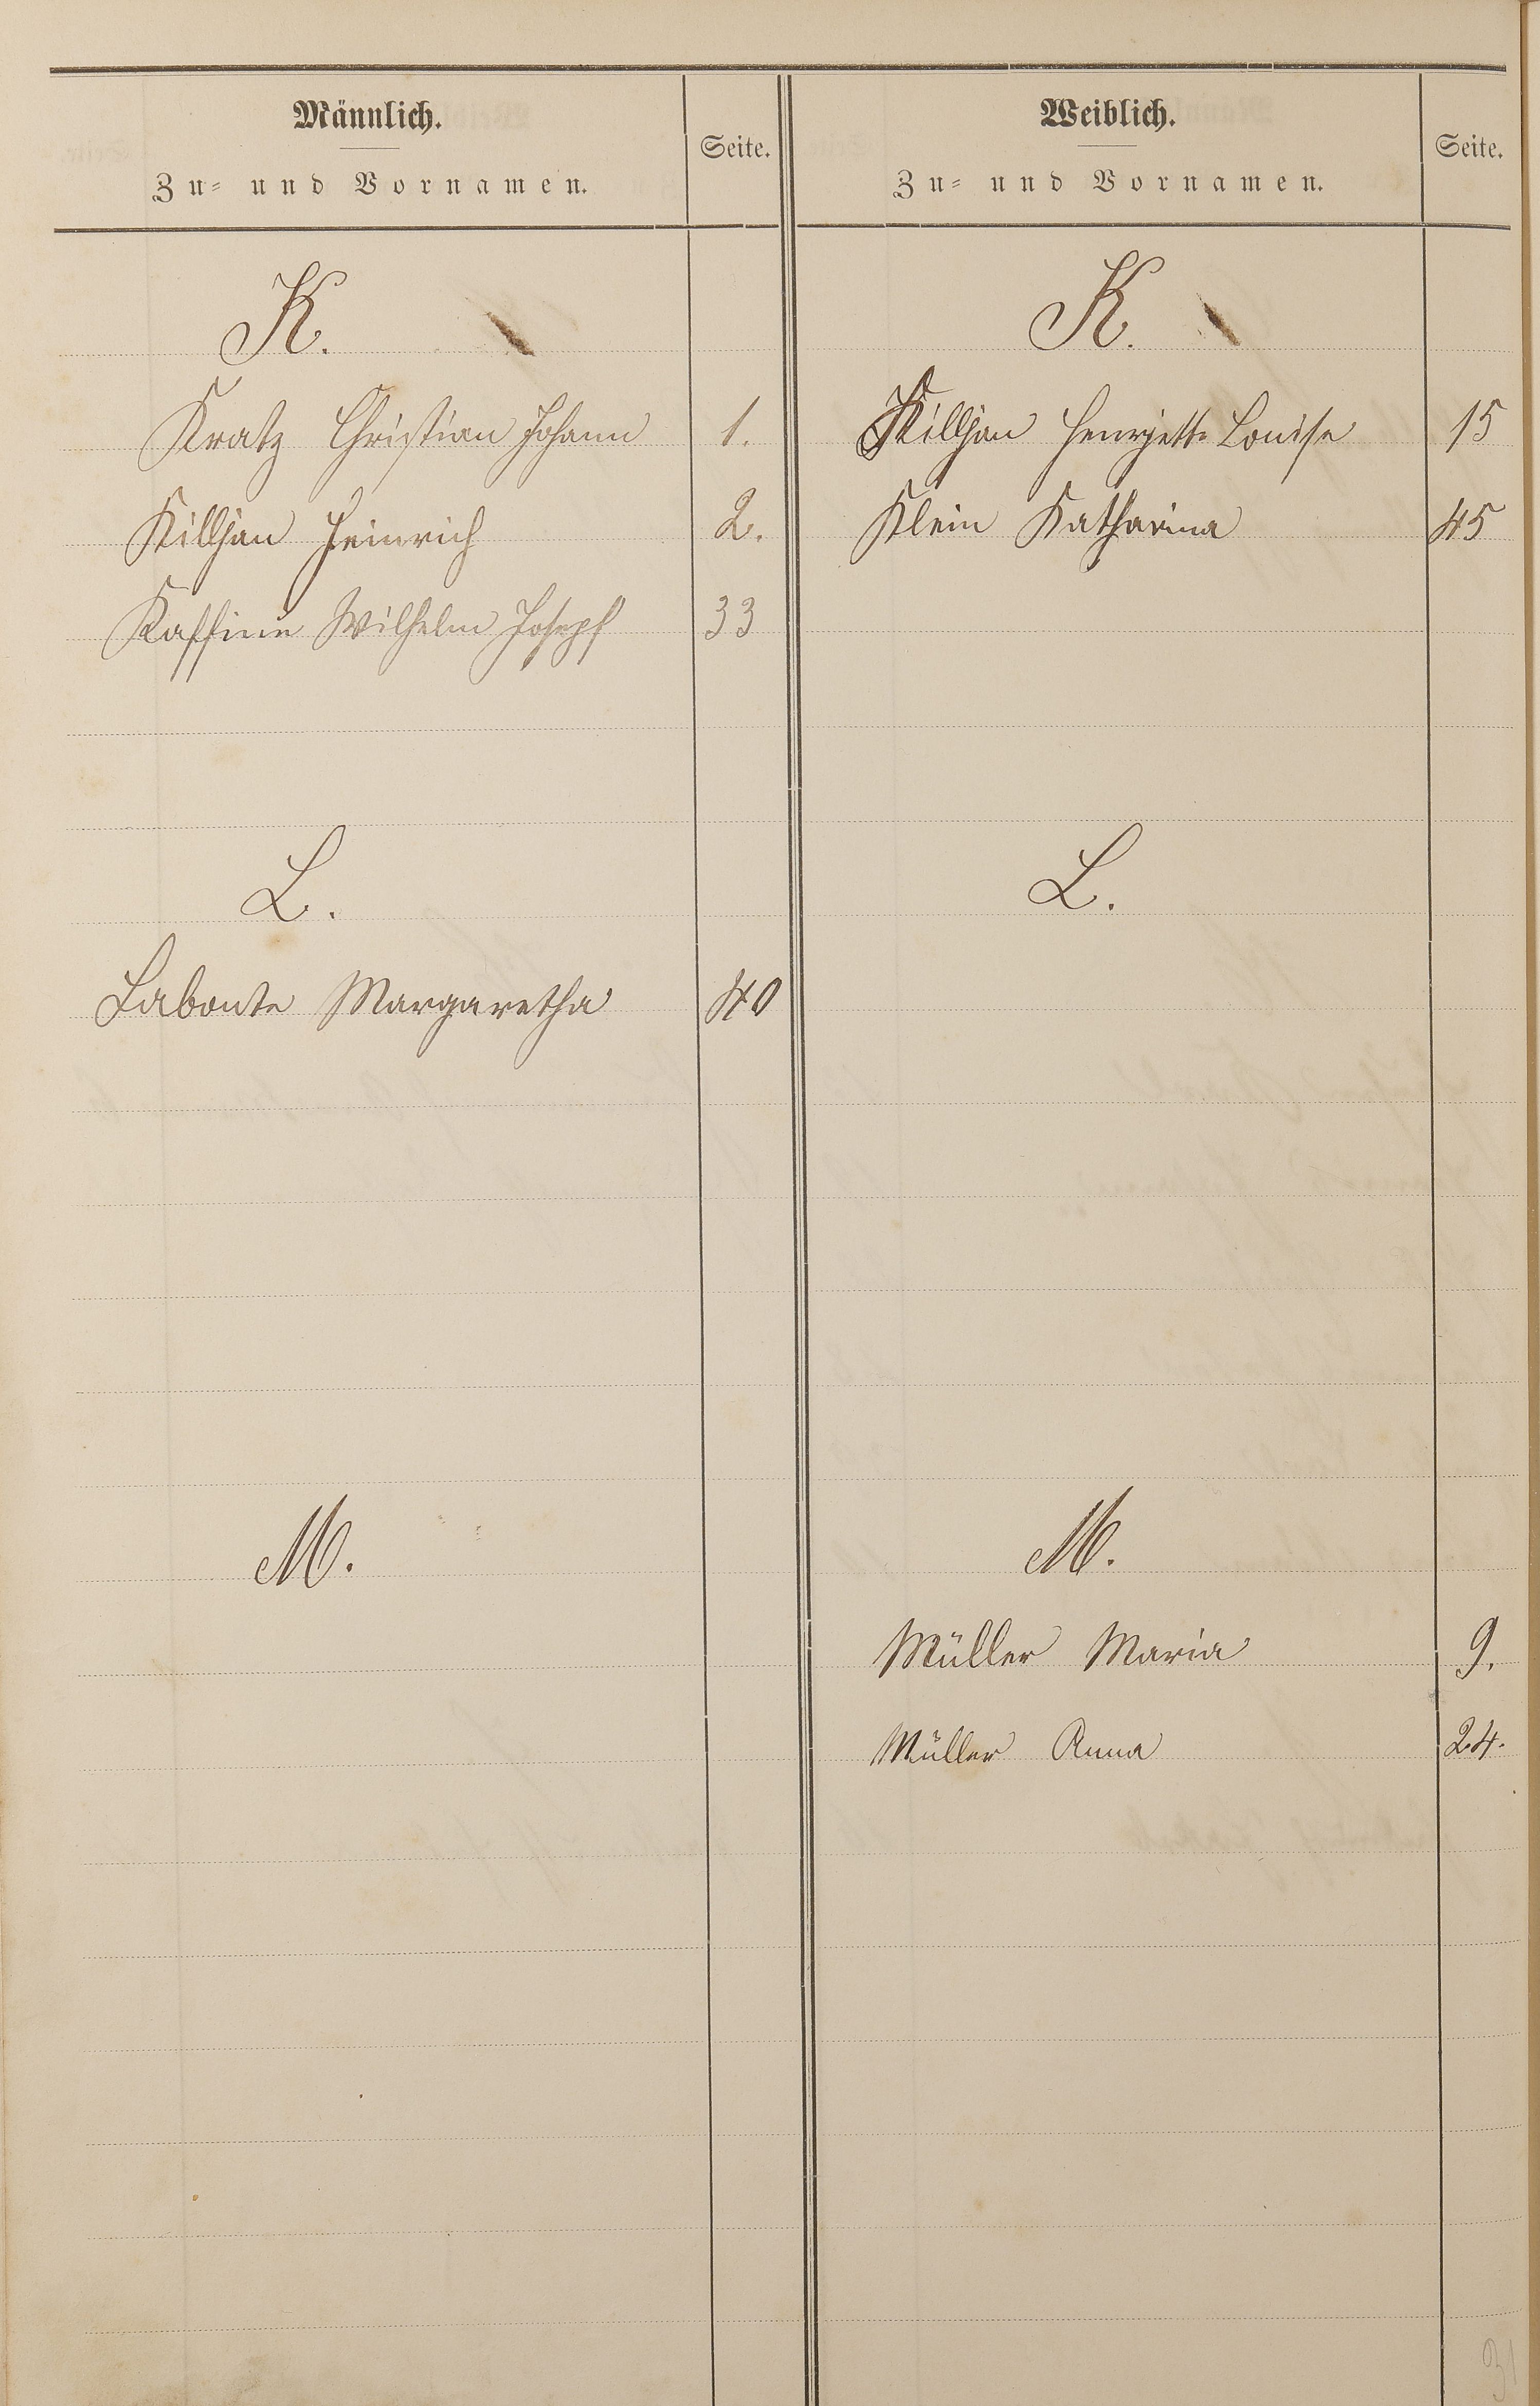 Männlich.
Zu- und Vornamen.
Seite.
K.
Kratz Christian Johann 1.
Killjan Heinrich 2.
Wilhelm Joseph 33
L.
Labonte Margaretha 40
M.
Weiblich.
Zu- und Vornamen.
Seite.
K.
Killjan Henrjette Louise 15
Klein Katharina 45
L.
M.
Müller Maria 9.
Müller Anna 24.
31